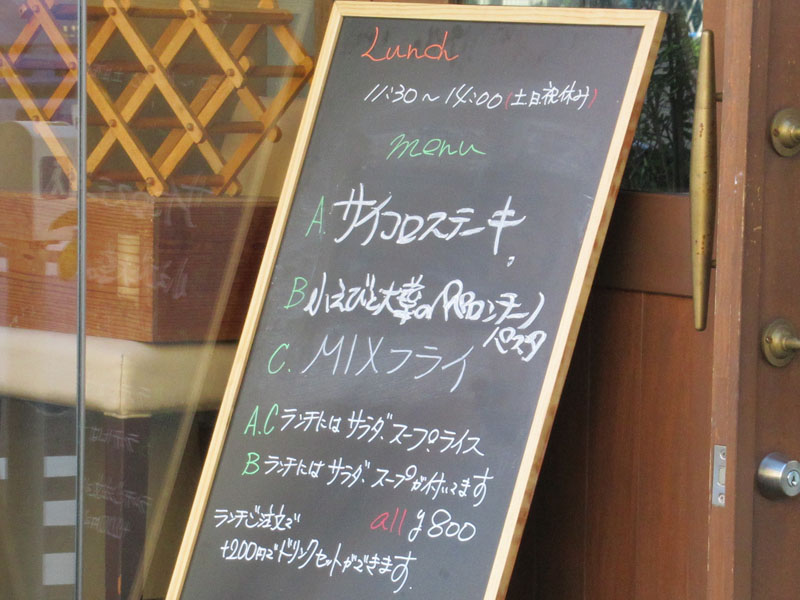 Lunch
11:30～14:00(土日祝休み)
menu
A. サイコロステーキ
B 小えびと大葉のペペロンチーノ
パスタ
C. MIXフライ
A.C ランチにはサラダ、スープ、ライス
B ランチにはサラダ、スープが付いてます
all ¥800
ランチご注文で
+200円でドリンクセットができます。